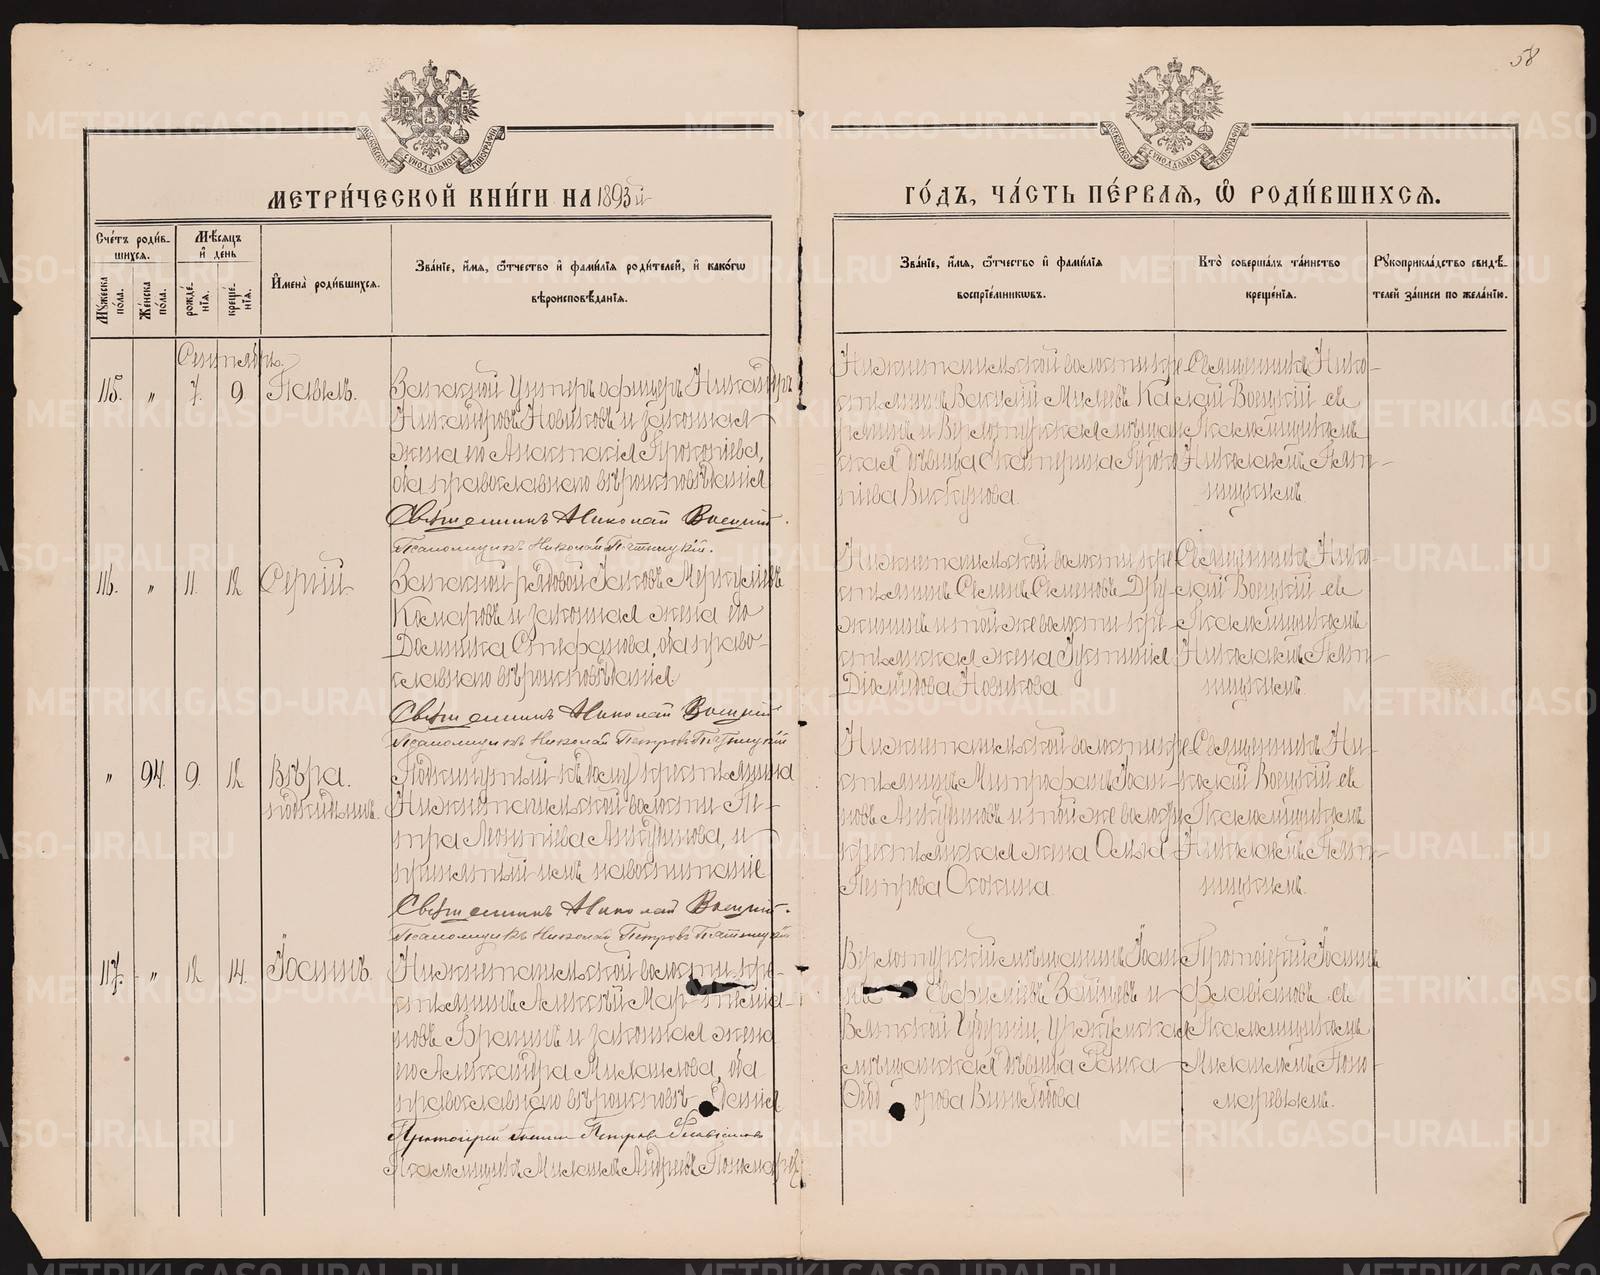 58
МОСКОВСКОЙ СѴНОДАЛЬНОЙ ТИПОГРАФІИ
МОСКОВСКОЙ СѴНОДАЛЬНОЙ ТИПОГРАФІИ
МЕТРИ́ЧЕСКОЙ КНИ́ГИ НА 1893й
ГО́ДЪ, ЧА́СТЬ ПЕ́РВАЯ, Ѡ҆ РОДИ́ВШИХСЯ.
Сче́тъ роди́в-
шихся.
Му́жеска
по́ла.
Же́нска
по́ла.
Мѣ́сяцъ
и҆ де́нь
рожде́-
нїя.
креще́-
нїя.
И҆мена̀ роди́вшихся.
Зва́нїе, и҆́мя, ѻ҆́тчество и҆ фами́лїя роди́телей, и҆ како́гѡ
вѣроисповѣ́данїя.
Зва́нїе, и҆́мя, ѻ҆́тчество и҆ фами́лїя
воспрїе́мниковъ.
Кто̀ соверша́лъ та́инство
креще́нїя.
Рꙋкоприкла́дство свидѣ́-
телей за́писи по жела́нїю.
Сентябрь
115. „ 7. 9 Павелъ.
Запасной Унтеръ офицеръ Никандръ
Никандровъ Новиковъ и законная
жена его Анастасія Прокопіева,
оба православнаго вѣроисповѣданія
Священникъ Николай Воецкій.
Псаломщикъ Николай Пятницкій.
Нижнетагильской волости кре-
стьянинъ Василій
и Верхотурская мѣщан-
ская дѣвица Екатерина Проко-
піева
Священникъ Нико-
лай Воецкій съ
Псаломщикомъ
Николаемъ Пят-
ницкимъ.
116. „ 11. 12 Сергій
Запасной рядовой Іаковъ Меркуліевъ
Комаровъ и законная жена его
Домника Стефанова, оба право-
славнаго вѣроисповѣданія
Священникъ Николай Воецкій
Псаломщикъ Николай Петровъ Пятницкій
Нижнетагильской волости кре-
стьянинъ Семенъ Семеновъ Дру-
жининъ и той же волости кре-
стьянская жена Іустинія
Діомидова Новикова
Священникъ Нико-
лай Воецкій съ
Псаломщикомъ
Николаемъ Пят-
ницкимъ.
„ 94. 9. 12 Вѣра.
подкидышъ.
Подкинутый къ дому крестьянина
Нижнетагильской волости Пе-
тра Леонтіева Анкудинова, и
принятый имъ на воспитаніе
Священникъ Николай Воецкій.
Псаломщикъ Николай Петровъ Пятницкій
Нижнетагильской волости кре-
стьянинъ Митрофанъ Іоан-
новъ Анкудиновъ и той же волости
крестьянская жена Ольга
Петрова Осокина
Священникъ Ни-
колай Воецкій съ
Псаломщикомъ
Николаемъ Пят-
ницкимъ.
117. „ 12 14. Іоаннъ.
Нижнетагильской волости кре-
стьянинъ Алексѣй
новъ и законная жена
его Александра Михаилова, оба
православнаго вѣроисповѣданія
Протоіерей Іоаннъ Петровъ Флавіановъ
Псаломщикъ Михаилъ Андреевъ Пономаревъ
Верхотурскій мѣщанинъ Іоан-
нъ Евфиміевъ Зайцевъ и
Вятской Губерніи, Уржумская
мѣщанская дѣвица
Ѳеодорова
Протоіерей Іоаннъ
Флавіановъ съ
Псаломщикомъ
Михаиломъ Поно-
маревымъ.
METRIKI.GASO-URAL.RU